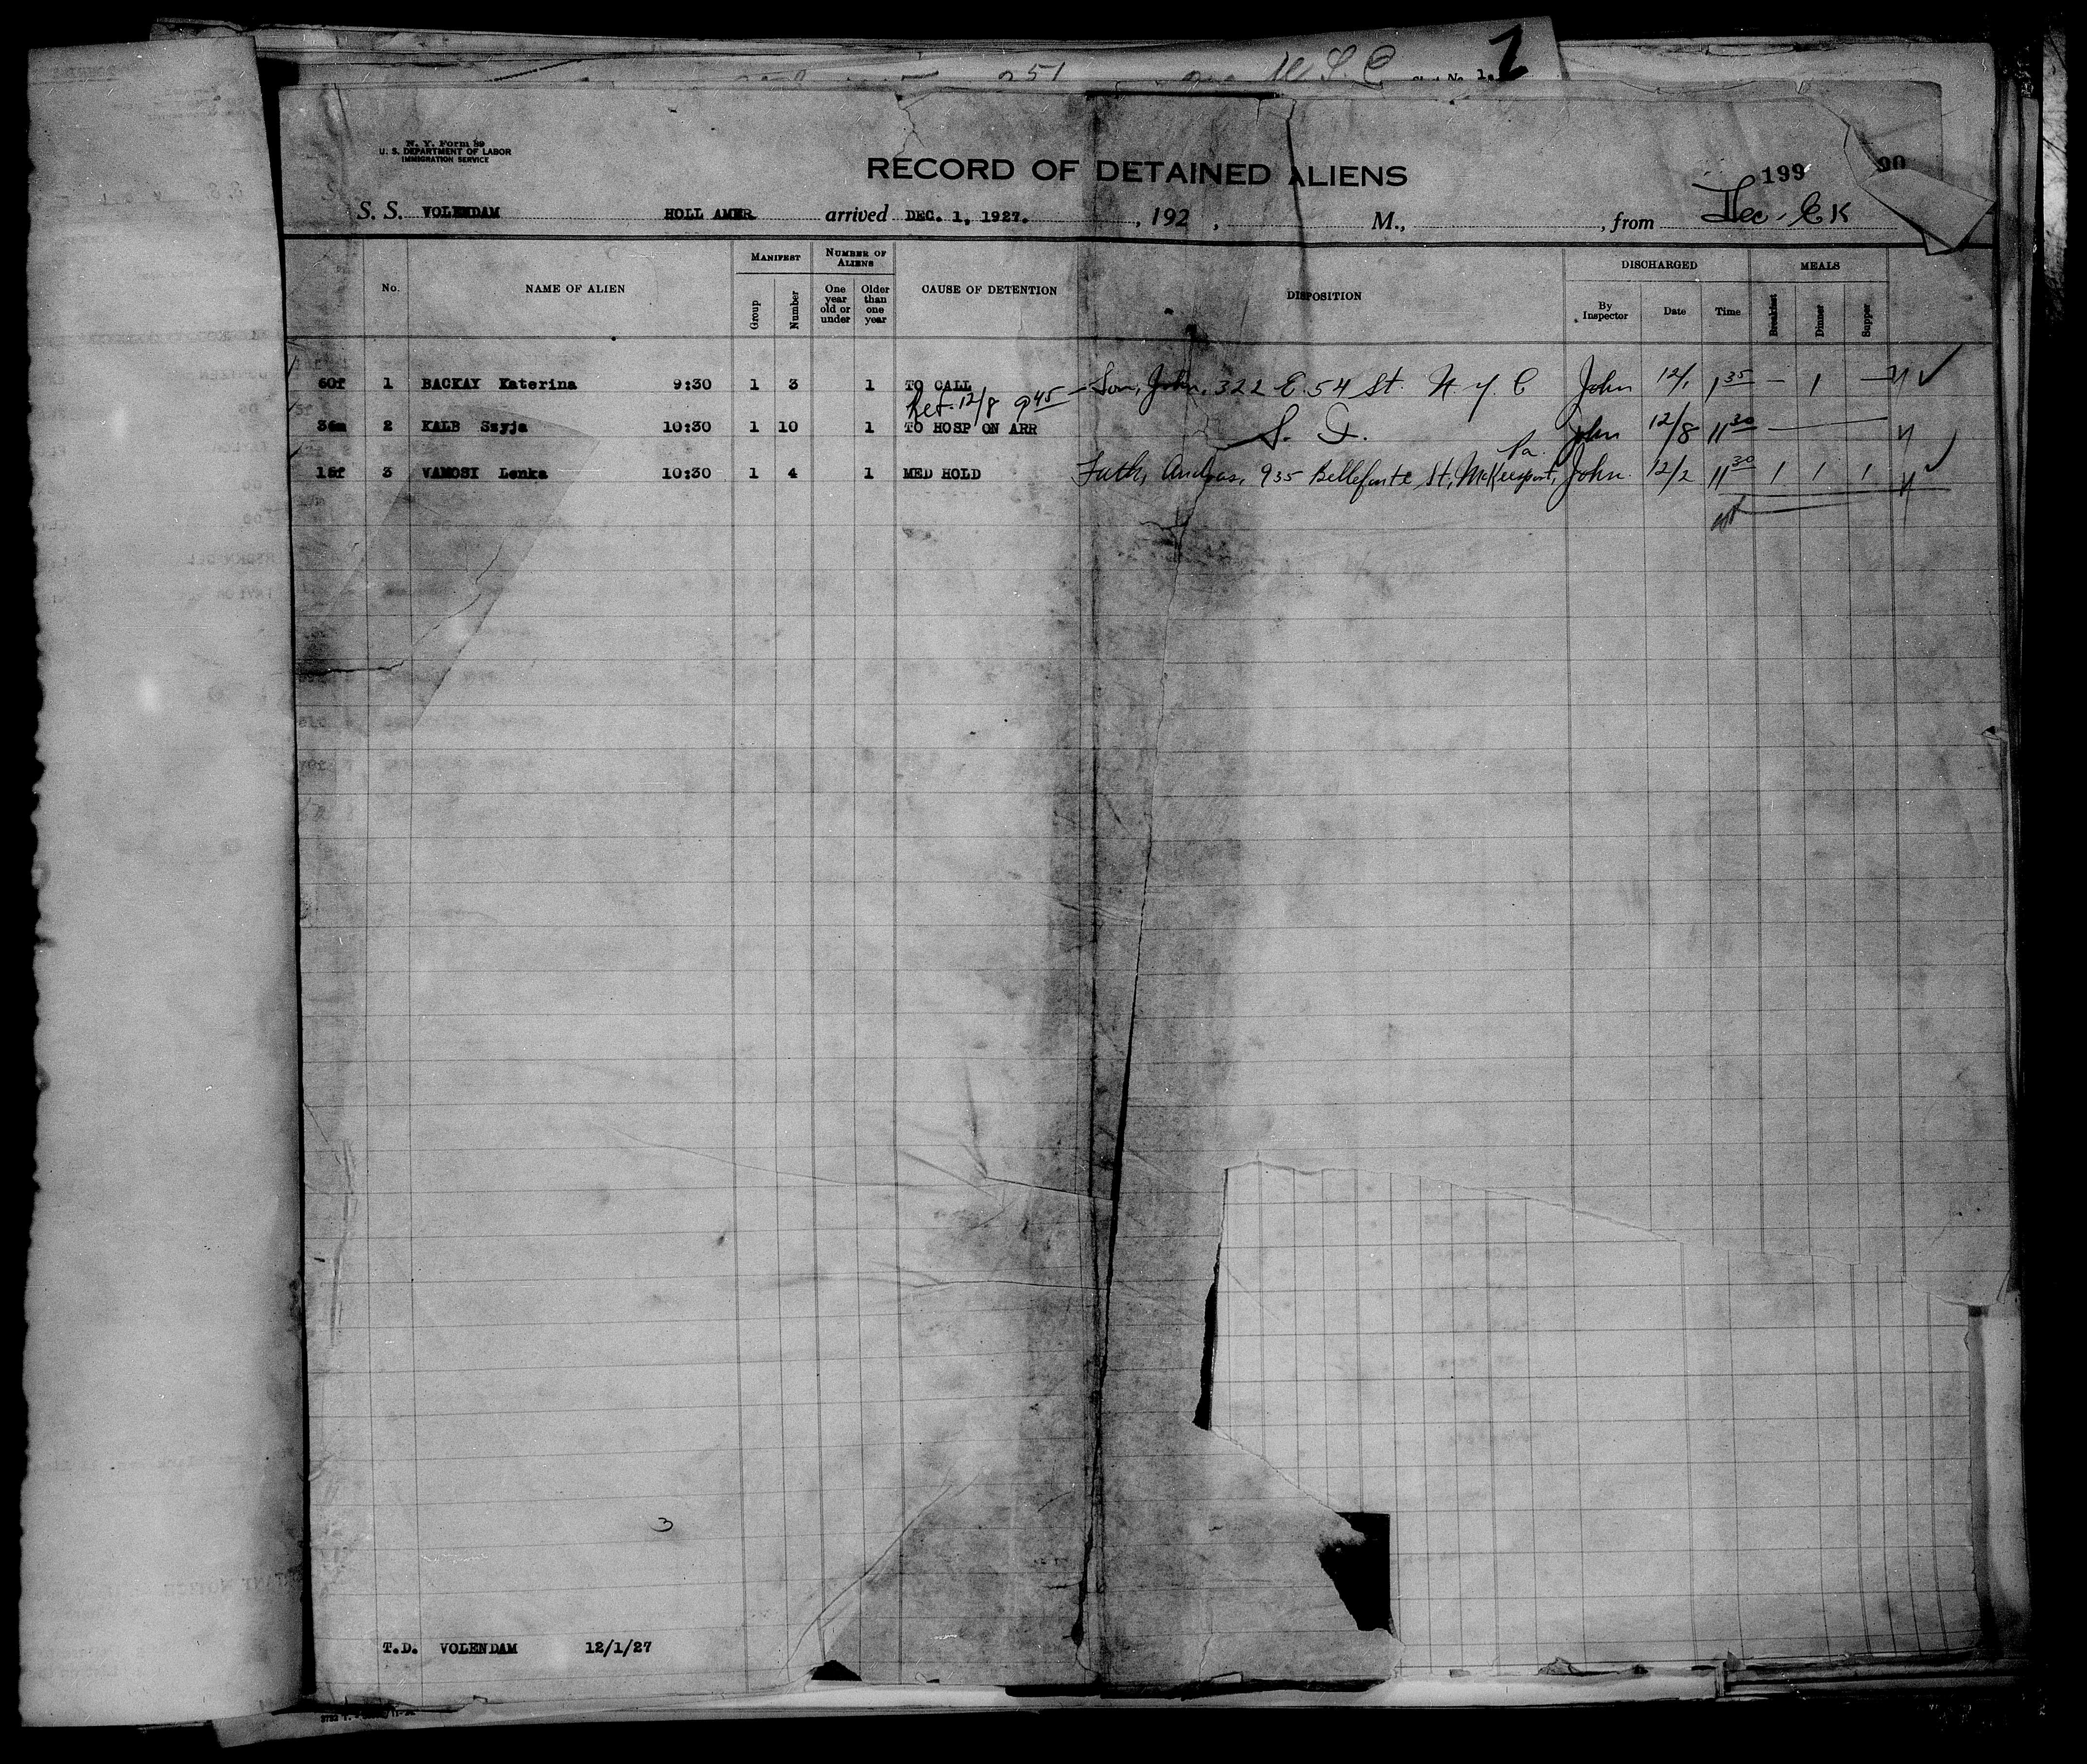 251
N. Y. Form 89
U. S. DEPARTMENT OF LABOR
IMMIGRATION SERVICE
RECORD OF DETAINED ALIENS
199 90
S. S. VOLENDAM HOLL AMER. arrived DEC. 1, 1927. , 192 , M., , from
No. NAME OF ALIEN MANIFEST Group Number NUMBER OF ALIENS One year old or under Older than one year CAUSE OF DETENTION DISPOSITION DISCHARGED By Inspector Date Time MEALS Breakfast Dinner Supper
60f 1 BACKAY Katerina 9:30 1 3 1 TO CALL Son, John, 322 E. 54 St. N. Y. C John 12/1 1 35 — 1 —
Ret. 12/8 9 45
36m 2 KALB Szyja 10:30 1 10 1 TO HOSP ON ARR S. I. John 12/8 11 30 —
Pa.
15f 3 VAMOSI Lenke 10:30 1 4 1 MED HOLD Fath, Andras, 935 Bellefonte St, McKeesport, John 12/2 11 30 1 1 1
3
T.D. VOLENDAM 12/1/27